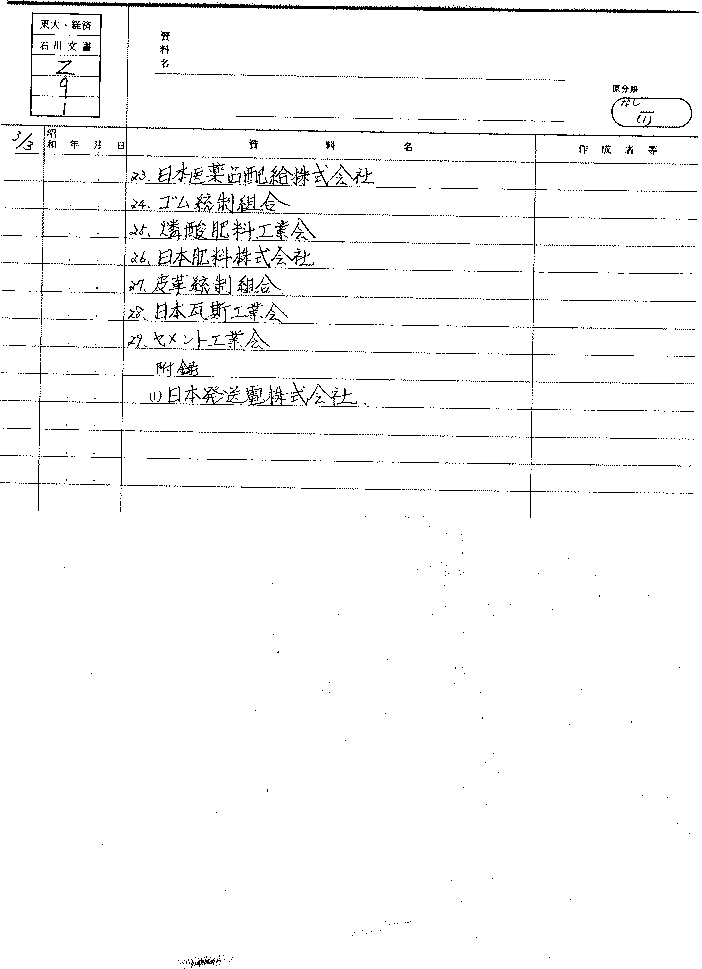 東大・経済
石川文書
Z
9
1
資料名
原分類
なし
(1)
3/3
昭和 年 月 日
資 料 名
作 成 者 等
23. 日本医薬品配給株式会社
24. ゴム統制組合
25. 燐酸肥料工業会
26. 日本肥料株式会社
27. 皮革統制組合
28. 日本瓦斯工業会
29. セメント工業会
附録
(1) 日本発送電株式会社